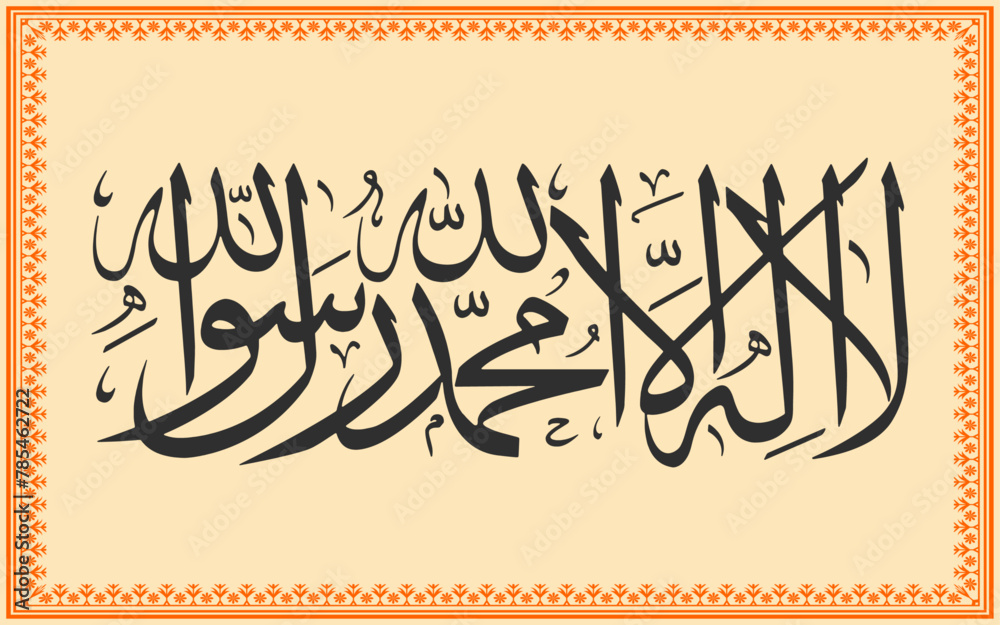 لا إله إلا الله محمد رسول الله
Adobe Stock | #785462722